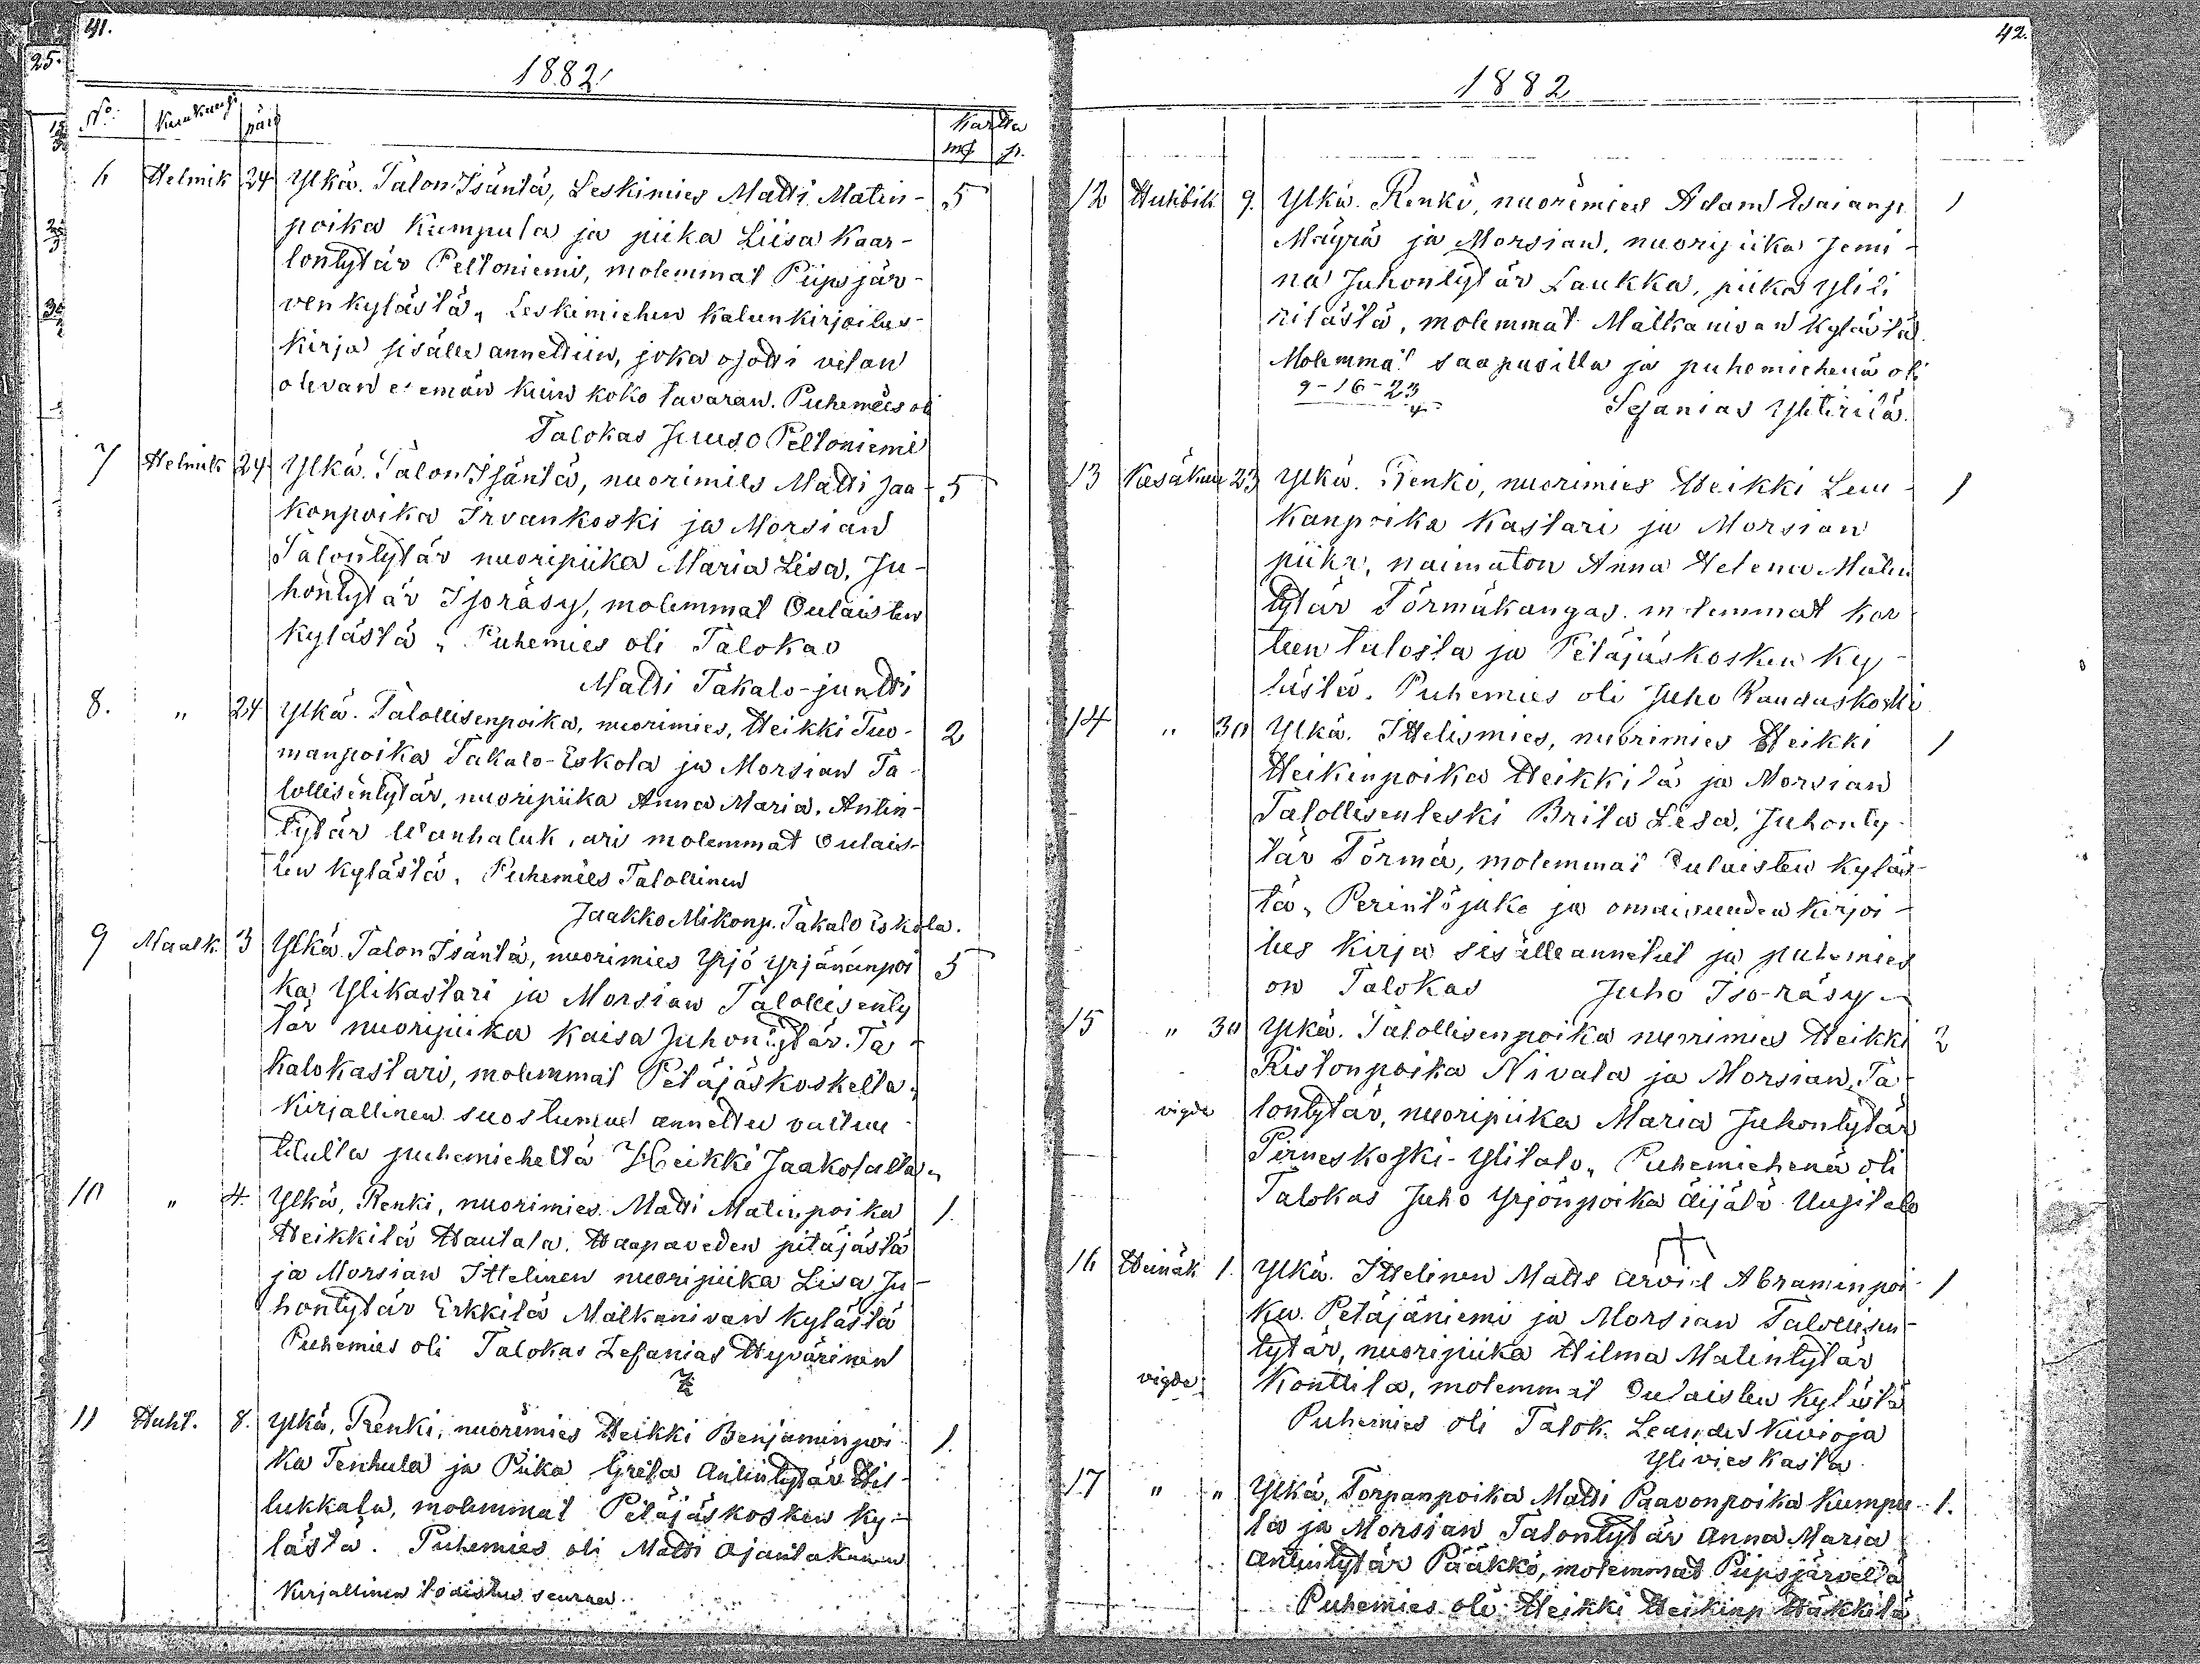 41.
25.
1882
No. Kuukausi päiv Kartta
mk p.
6 Helmik 24 Ylkä. Talon Isäntä, Leskimies Matti Matin- 5
poika Kumpula ja piika Liisa Kaar-
lontytär Peltoniemi, molemmat Piipsjär-
ven kylästä, Leskimiehen kalunkirjoitus-
kirja sisälle annettiin, joka osotti velan
olevan enemän kuin koko tavaran. Puhemies oli
Talokas Juuso Peltoniemi
7 Helmik 24 Ylkä. Talon Isäntä, nuorimies Matti Jaa- 5
konpoika Irvankoski ja Morsian
Talontytär nuoripiika Maria Lisa, Ju-
hontytär Isoräsy, molemmat Oulaisten
kylästä, Puhemies oli Talokas
Matti Takalo-juntti
8. " 24 Ylkä. Talollisenpoika, nuorimies, Heikki Tuo- 2
manpoika Takalo-Eskola ja Morsian Ta-
lollisentytär, nuoripiika Anna Maria, Antin-
tytär Wanhaluk, ari molemmat Oulais-
ten kylästä, Puhemies Talollinen
Jaakko Mikonp. Takalo Eskola.
9 Maalk. 3 Ylkä Talon Isäntä, nuorimies Yrjö Yrjänänpoi 5
ka Ylikastari ja Morsian Talollisenty
tär nuoripiika Kaisa Juhontytär. Ta-
kalokastari, molemmat Petäjäskoskelta,
Kirjallinen suostumus annettu valtuu
tetulta puhemieheltä Heikki Jaakolalta,
10 " 4. Ylkä, Renki, nuorimies. Matti Matinpoika 1.
Heikkilä Hautala. Haapaveden pitäjästä
ja Morsian Ittelinen nuoripiika Lisa Ju-
hontytär Erkkilä Matkanivan kylästä
Puhemies oli Talokas Zefanias Hyvärinen
11 Huht. 8. Ylkä, Renki, nuorimies Heikki Benjaminpoi 1.
ka Tenhula ja Piika Greta Antintytär Hil-
lukkala, molemmat Petäjäskosken ky-
lästä. Puhemies oli Matti Ojantakanen
Kirjallinen todistus seuraa
42.
1882
12 Huhtik 9. Ylkä. Renki, nuorimies Adam Esaianp. 1
Mäyrä ja Morsian, nuoripiika Jemi-
na Juhontytär Laukka, piika Yliti
rilästä, molemmat Matkanivan kylästä.
Molemmat saapusilla ja puhemiehenä oli
9-16-23
4 Sefanias Ylitirilä.
13 Kesäkuu 23 Ylkä. Renki, nuorimies Heikki Luu- 1
kanpoika Kastari ja Morsian
piika, naimaton Anna Helena Matin
tytär Törmäkangas. molemmat Kor
teen talosta ja Petäjäskosken ky-
lästä. Puhemies oli Juho Raudaskoski
14 " 30 Ylkä. Ittelismies, nuorimies Heikki 1
Heikinpoika Heikkilä ja Morsian
Talollisenleski Brita Lisa, Juhonty-
tär Törmä, molemmat Oulaisten kyläs-
tä, Perintöjako ja omaisuuden kirjoi-
tus kirja sisälleannetut ja puhemies
on Talokas Juho Iso-räsy.
15 " 30 Ylkä. Talollisenpoika nuorimies Heikki 2
Ristonpoika Nivala ja Morsian, Ta-
vigde lontytär, nuoripiika Maria Juhontytär
Pirneskoski-Ylitalo, Puhemiehenä oli
Talokas Juho Yrjönpoika Äijälä Uusitalo
16 Heinäk 1. Ylkä. Ittelinen Matts Arvid Abraminpoi- 1
ka. Petäjäniemi ja Morsian Talollisen-
tytär, nuoripiika Hilma Matintytär
vigde Konttila, molemmat Oulaisten kylästä
Puhemies oli Talok. Leander Kivioja
Ylivieskasta.
17 " " Ylkä, Torpanpoika Matti Paavonpoika Kumpu- 1.
la ja Morsian Talontytär Anna Maria
Antintytär Pääkkö, molemmat Piipsjärveltä
Puhemies oli Heikki Heikinp Häkkilä